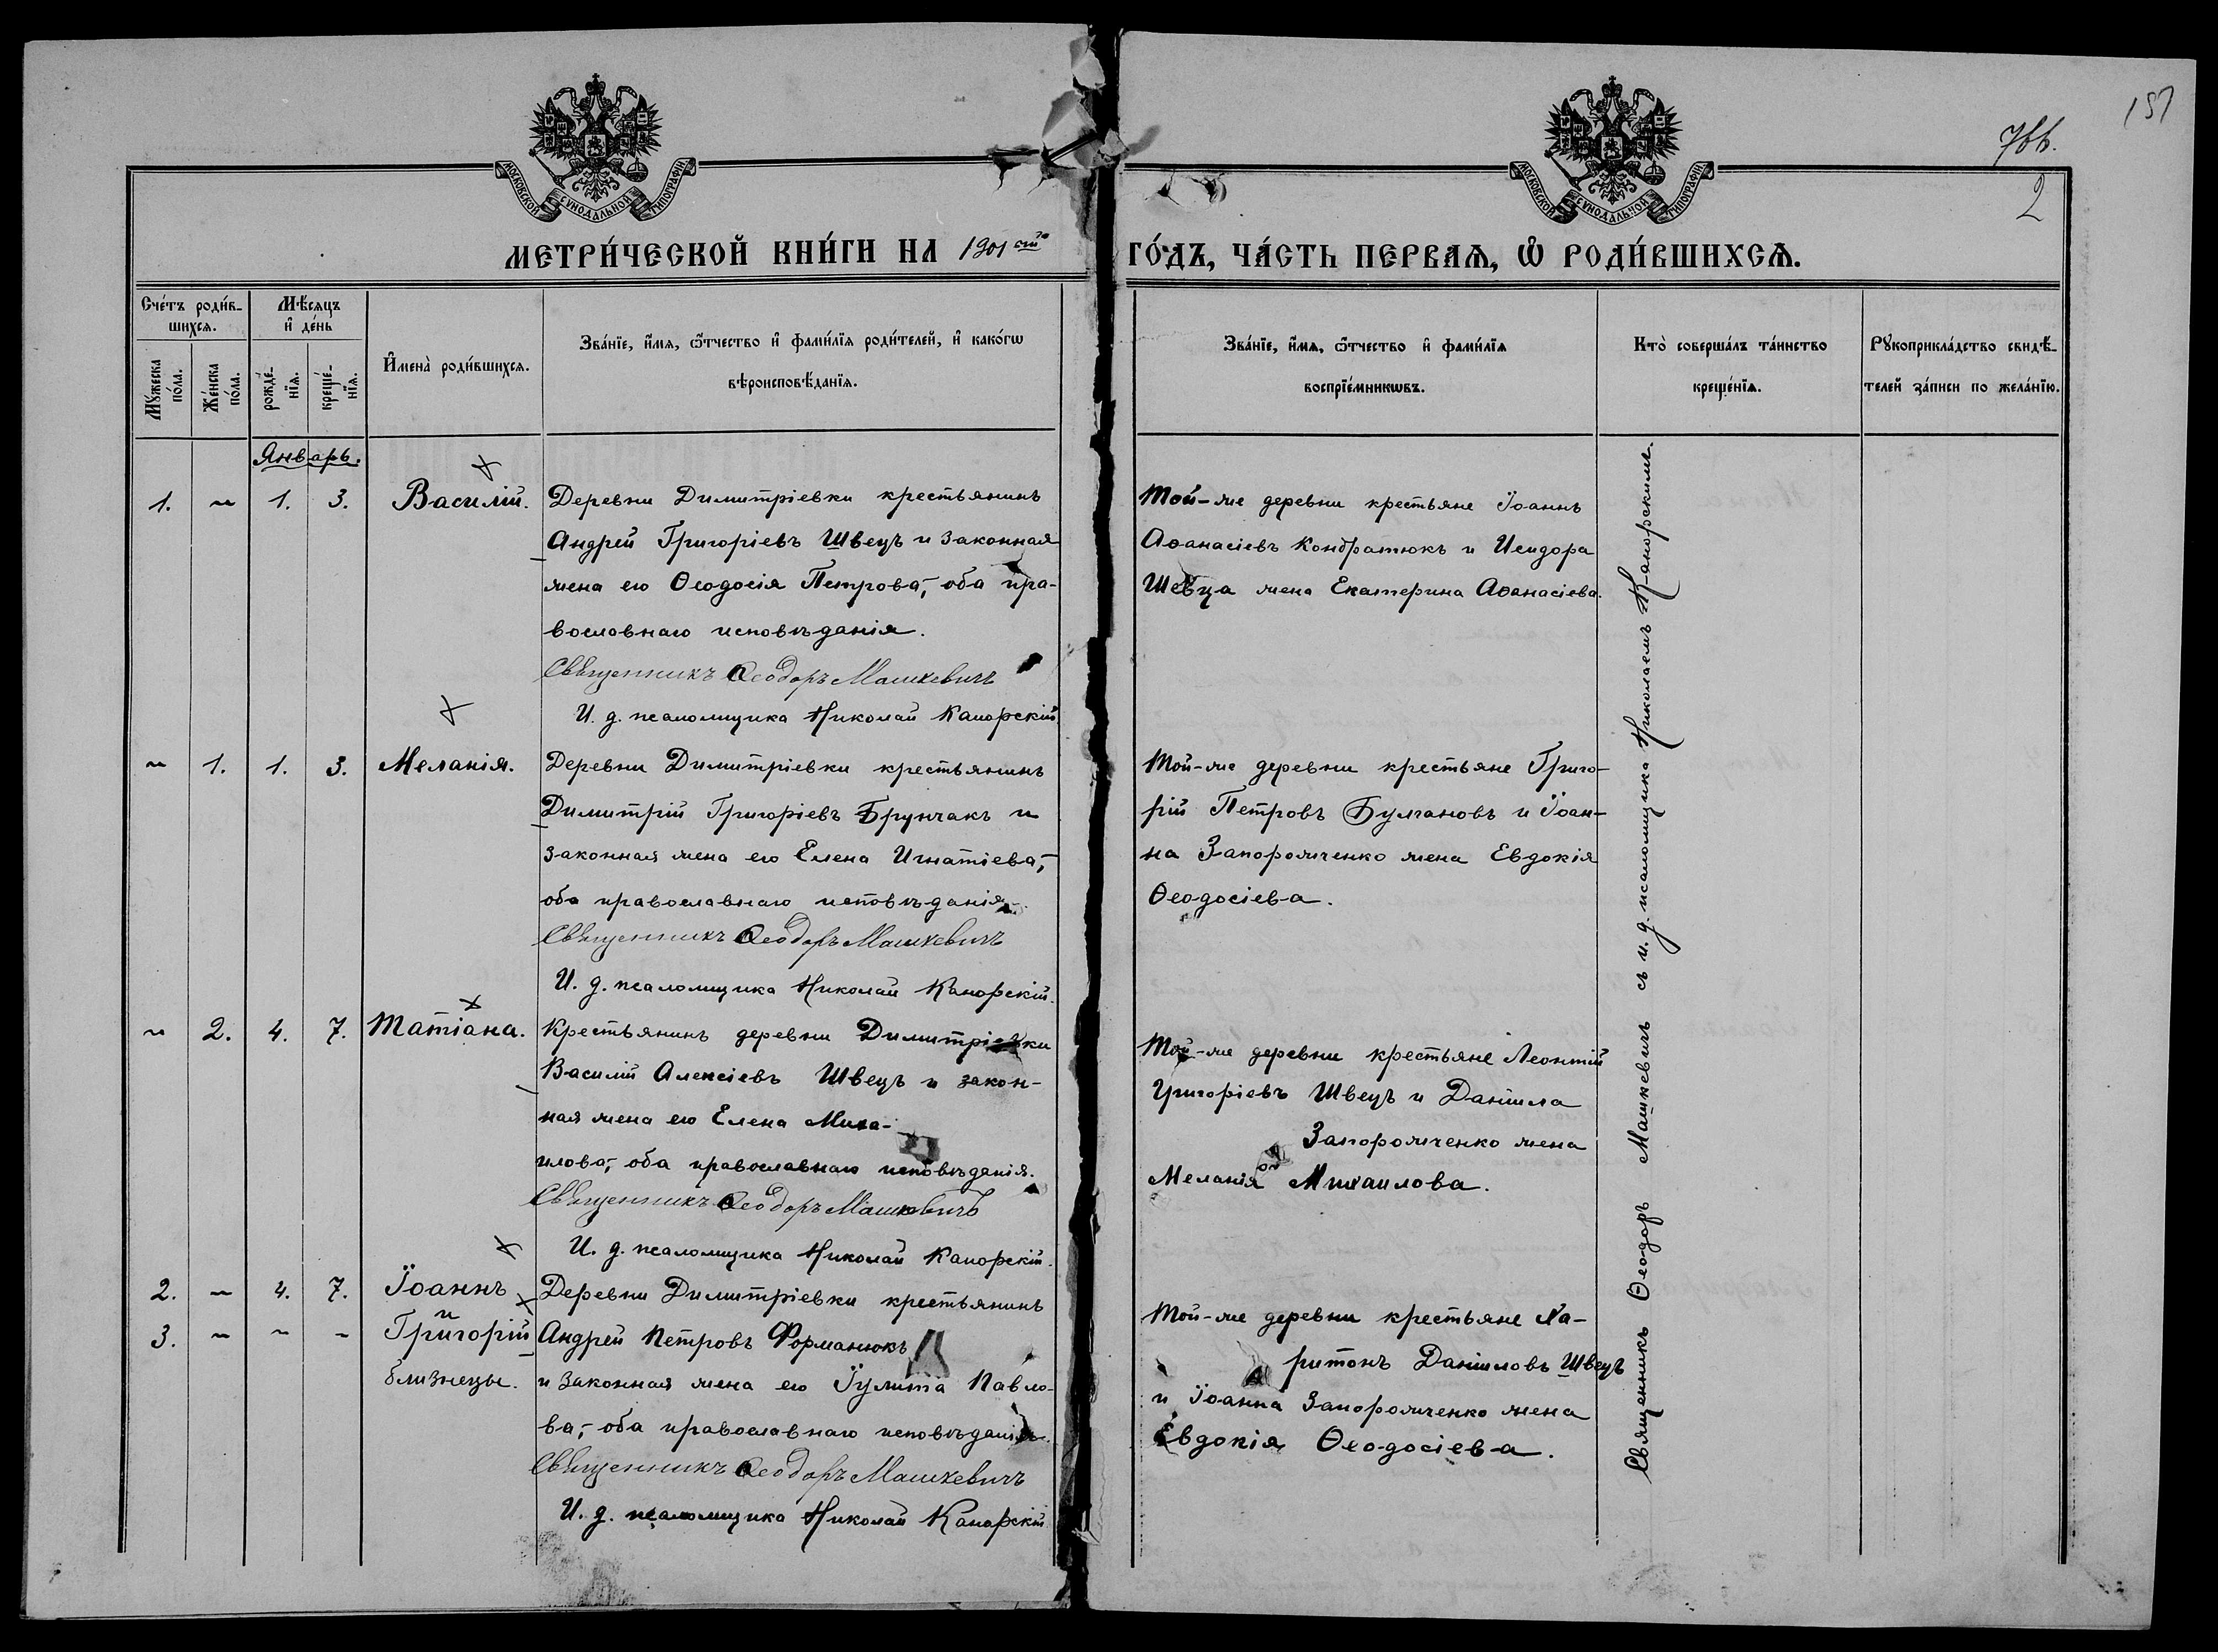 157
766.
2
МОСКОВСКОЙ СѴНОДАЛЬНОЙ ТИПОГРАФІИ
МОСКОВСКОЙ СѴНОДАЛЬНОЙ ТИПОГРАФІИ
МЕТРИ́ЧЕСКОЙ КНИ́ГИ НА 1901 ый ГО́ДЪ, ЧА́СТЬ ПЕРВАѦ, Ѽ РОДИ́ВШИХСѦ.
Сче́тъ роди́в-
шихсѧ.
Мѣ́сѧцъ
и҆ де́нь
Мꙋ́жеска
по́ла.
Же́нска
по́ла.
рожде́-
нїѧ.
креще́-
нїѧ.
И҆мена̀ роди́вшихсѧ.
Зва́нїе, и҆́мѧ, ѻ҆́тчество и҆ фами́лїѧ роди́телей, и҆ како́гѡ
вѣроисповѣ́данїѧ.
Зва́нїе, и҆́мѧ, ѻ҆́тчество и҆ фами́лїѧ
воспрїе́мникѡвъ.
Кто̀ соверша́лъ та́инство
креще́нїѧ.
Рꙋкоприкла́дство свидѣ́-
телей за́писи по жела́нїю.
Январь.
1. ~ 1. 3. Василій. Деревни Димитріевки крестьянинъ
Андрей Григоріевъ Швецъ и законная
жена его Ѳеодосія Петрова,- оба пра-
вославнаго исповѣданія.
Священникъ Ѳеодоръ Машкевичъ
И. д. псаломщика Николай Капорскій.
Той-же деревни крестьяне Іоаннъ
Аѳанасіевъ Кондратюкъ и Исидора
Шевца жена Екатерина Аѳанасіева.
~ 1. 1. 3. Меланія. Деревни Димитріевки крестьянинъ
Димитрій Григоріевъ Брунчакъ и
законная жена его Елена Игнатіева,-
оба православнаго исповѣданія.
Священникъ Ѳеодоръ Машкевичъ
И. д. псаломщика Николай Капорскій.
Той-же деревни крестьяне Григо-
рій Петровъ Булгановъ и Іоан-
на Запорожченко жена Евдокія
Ѳеодосіева.
~ 2. 4. 7. Татіана. Крестьянинъ деревни Димитріевки
Василій Алексіевъ Швецъ и закон-
ная жена его Елена Миха-
илова,- оба православнаго исповѣданія.
Священникъ Ѳеодоръ Машкевичъ
И. д. псаломщика Николай Капорскій.
Той-же деревни крестьяне Леонтій
Григоріевъ Швецъ и Даніила
Запорожченко жена
Меланія Михаилова.
2. ~ 4. 7. Іоаннъ Деревни Димитріевки крестьянинъ
и
3. ~ ~ - Григорій Андрей Петровъ Форманюкъ
близнецы. и законная жена его Іулита Павло-
ва,- оба православнаго исповѣданія.
Священникъ Ѳеодоръ Машкевичъ
И. д. псаломщика Николай Капорскій
Той-же деревни крестьяне Ха-
ритонъ Даніиловъ Швецъ
и Іоанна Запорожченко жена
Евдокія Ѳеодосіева.
Священникъ Ѳеодоръ Машкевичъ съ и. д. псаломщика Николаемъ Капорскимъ.